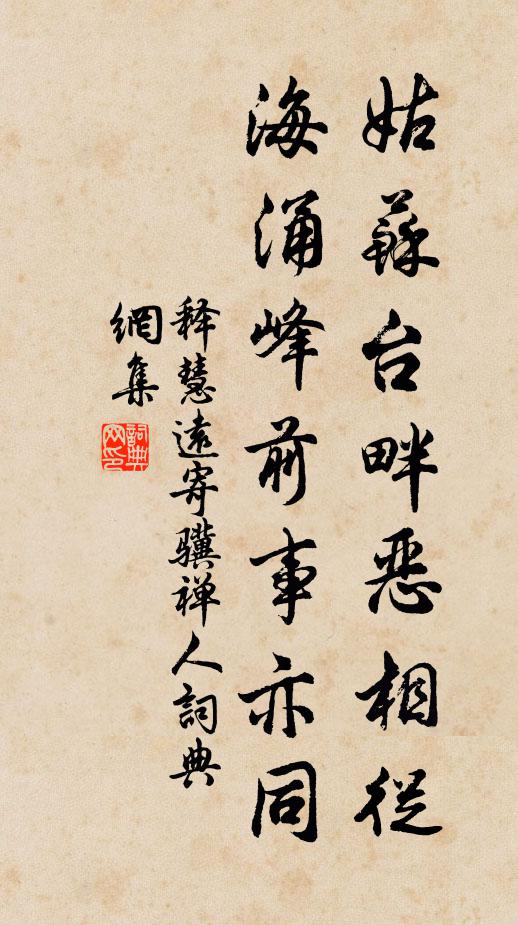 姑蘇台畔恶相從
海涌峰前事亦同
释慧遠寄驥禅人詞典
網集
詞典
网印